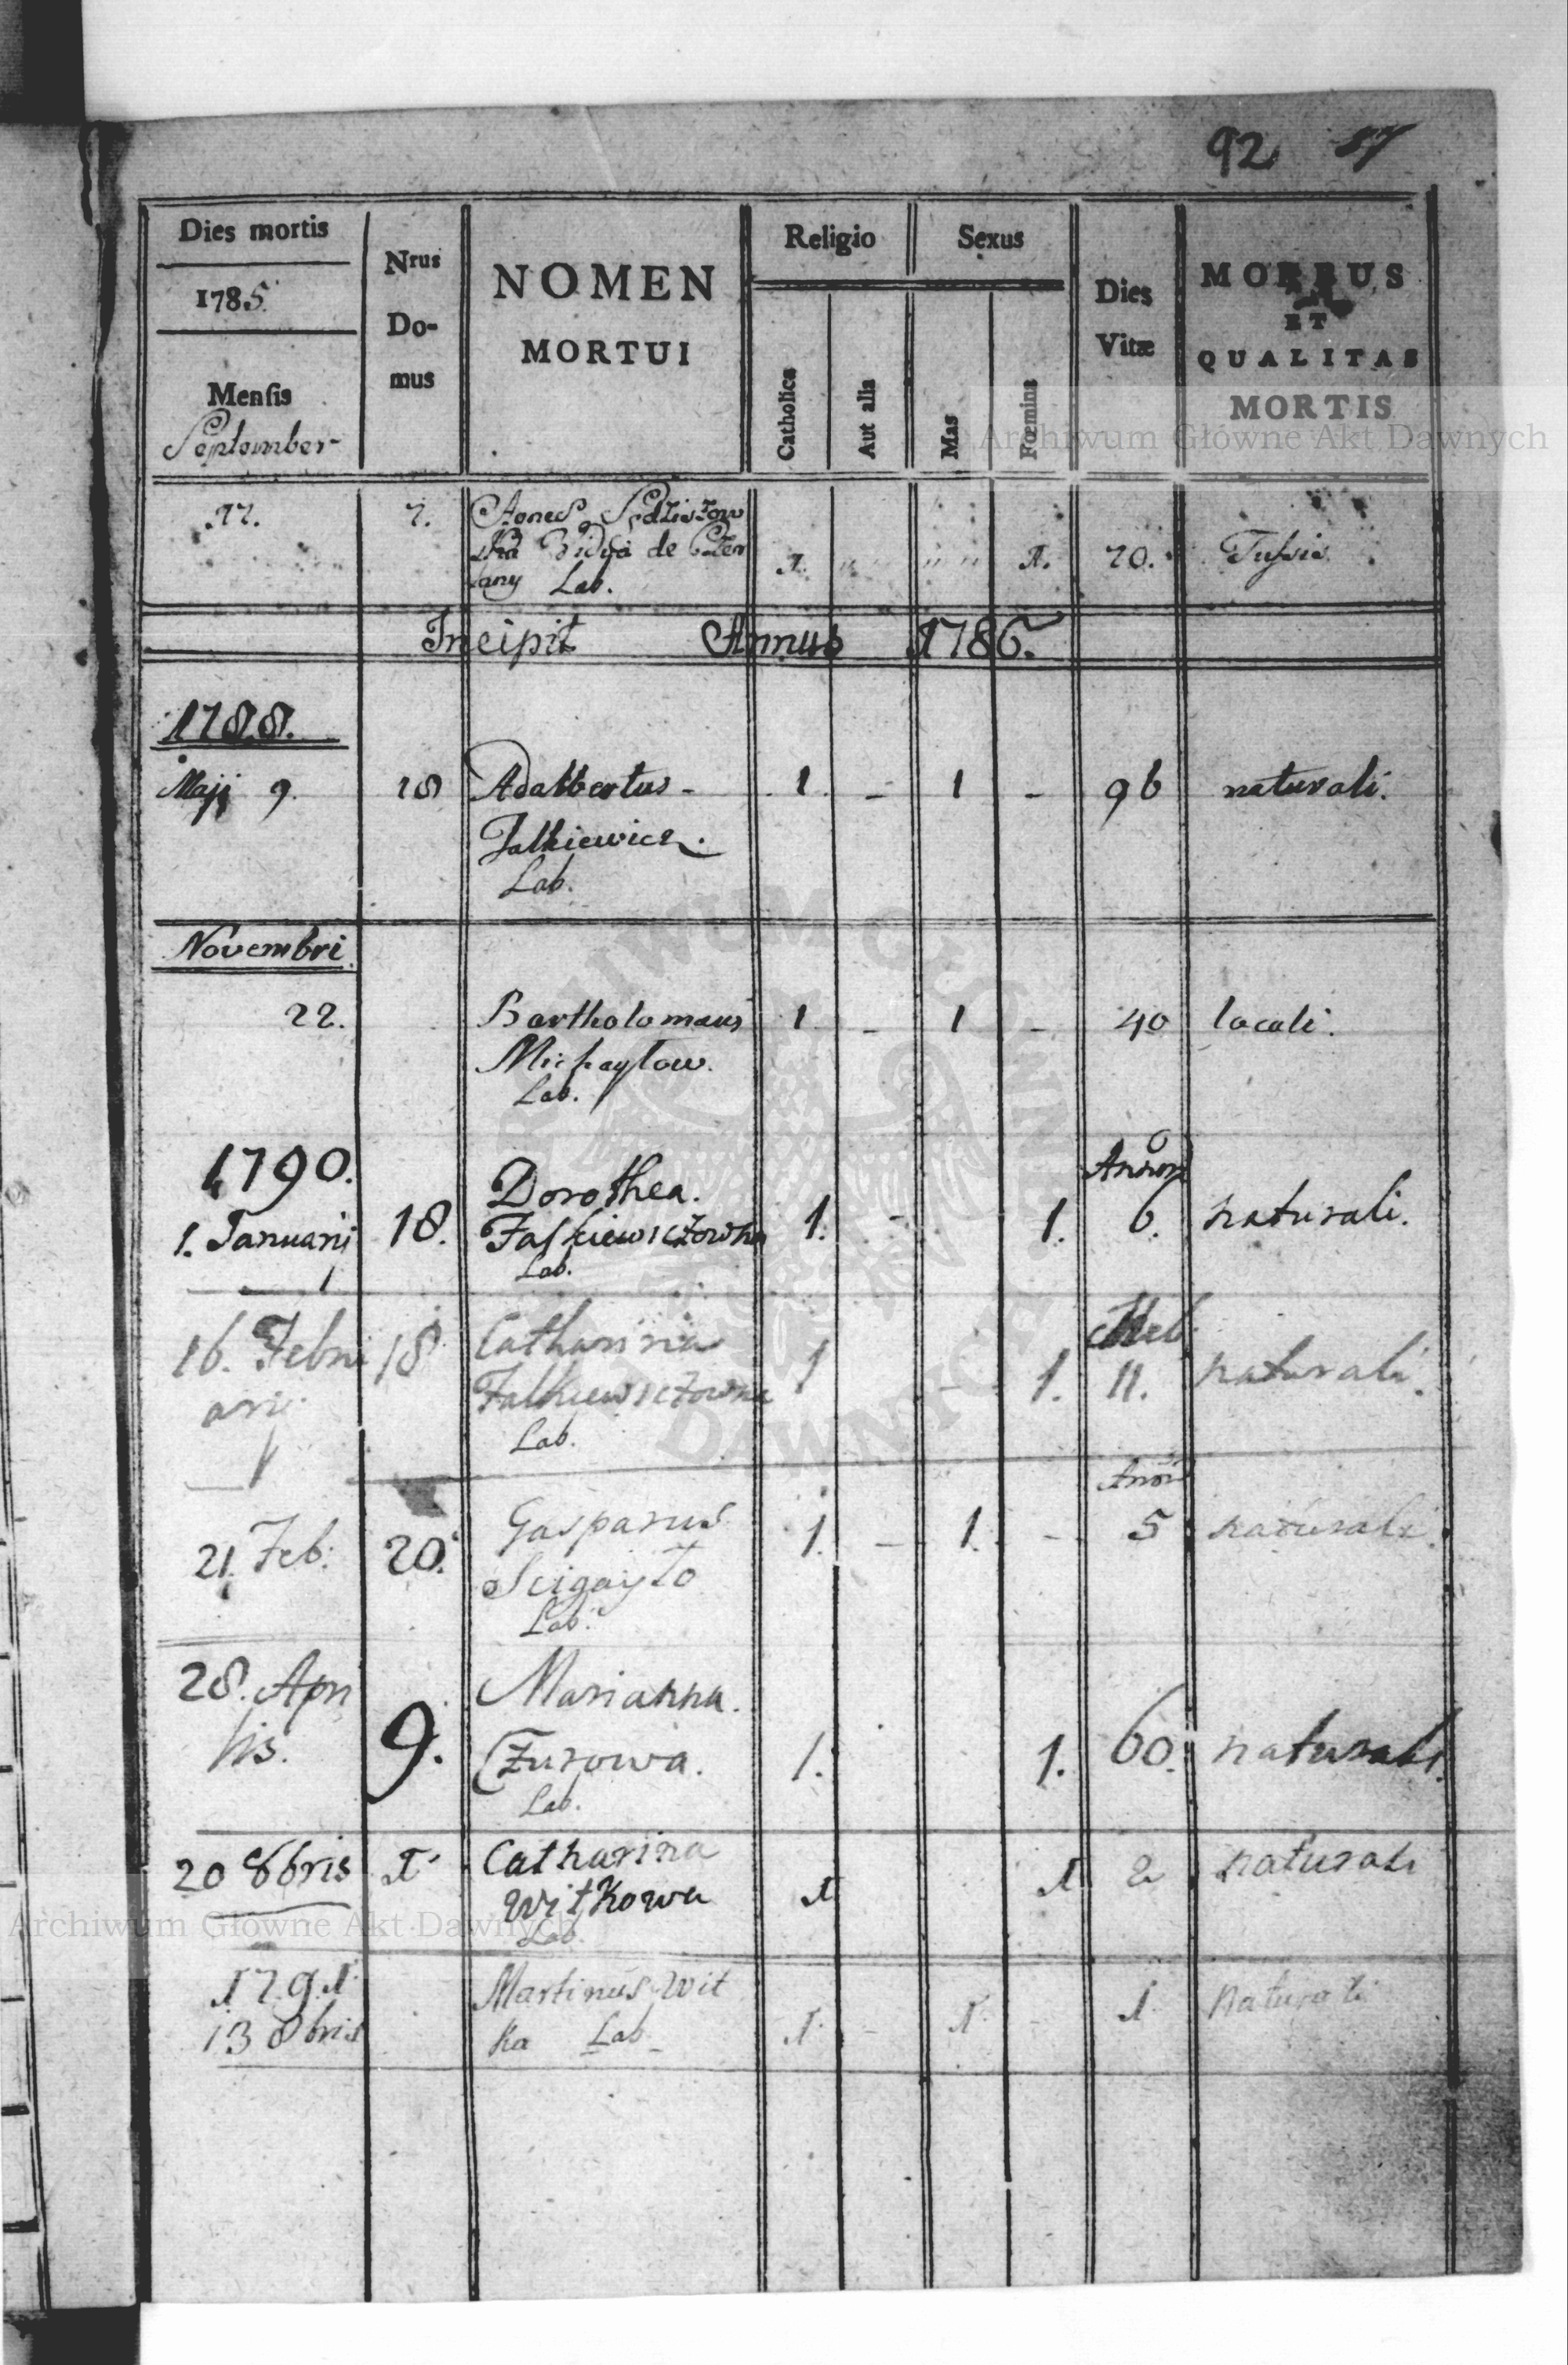 92 87
Dies mortis
1785.
Menſis
September
Nrus
Do-
mus
NOMEN
MORTUI
Religio
Catholica
Aut alia
Sexus
Mas
Fœmina
Dies
Vitæ
MORBUS
ET
QUALITAS
MORTIS
Archiwum Główne Akt Dawnych
7.
Agnes
de
Lab.
1. 1. 20. Tuſsis
Incipit Annus 1786.
1788.
Maji 9. 18 Adalbertus - 1 - 1 - 96 naturali.
Falkiewicz.
Lab.
Novembri
22. Bartholomaus 1 - 1 - 40 locali.
Michayłow.
Lab.
1790.
1. Januarij 18. Dorothea. 1. - 1. 6. naturali.
Falkiewiczowna
Lab.
16. Febru 18 Catharina 1 - 1. 11. naturali.
arij
Falkiewiczowna
Lab.
21. Feb. 20. Gasparus 1. - 1. - 5 naturali.
Scigayło
Lab.
28. Apri 9. Marianna. 1. 1. 60. naturali.
lis.
Czurowa.
Lab.
20 8bris 1 Catharina 1 1 2 naturali
Witkowa
Lab.
Archiwum Główne Akt Dawnych
1791
13 8bris Martinus Wit 1 - 1 - 1 naturali
ka Lab
ARCHIWUM GŁÓWNE AKT DAWNYCH